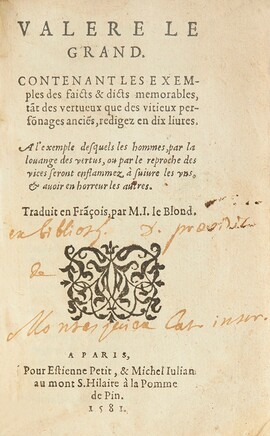 VALERE LE
GRAND.
CONTENANT LES EXEM-
ples des faicts & dicts memorables,
tāt des vertueux que des vitieux per-
ſōnages anciēs, redigez en dix liures.
A l'exemple deſquels les hommes, par la
louange des vertus, ou par le reproche des
vices ſeront enflammez à ſuiure les vns,
& auoir en horreur les autres.
Traduit en Frāçois, par M. I. le Blond.
ex biblioth. D.
de
A PARIS,
Pour Eſtienne Petit, & Michel Iulian
au mont S. Hilaire à la Pomme
de Pin.
1581.